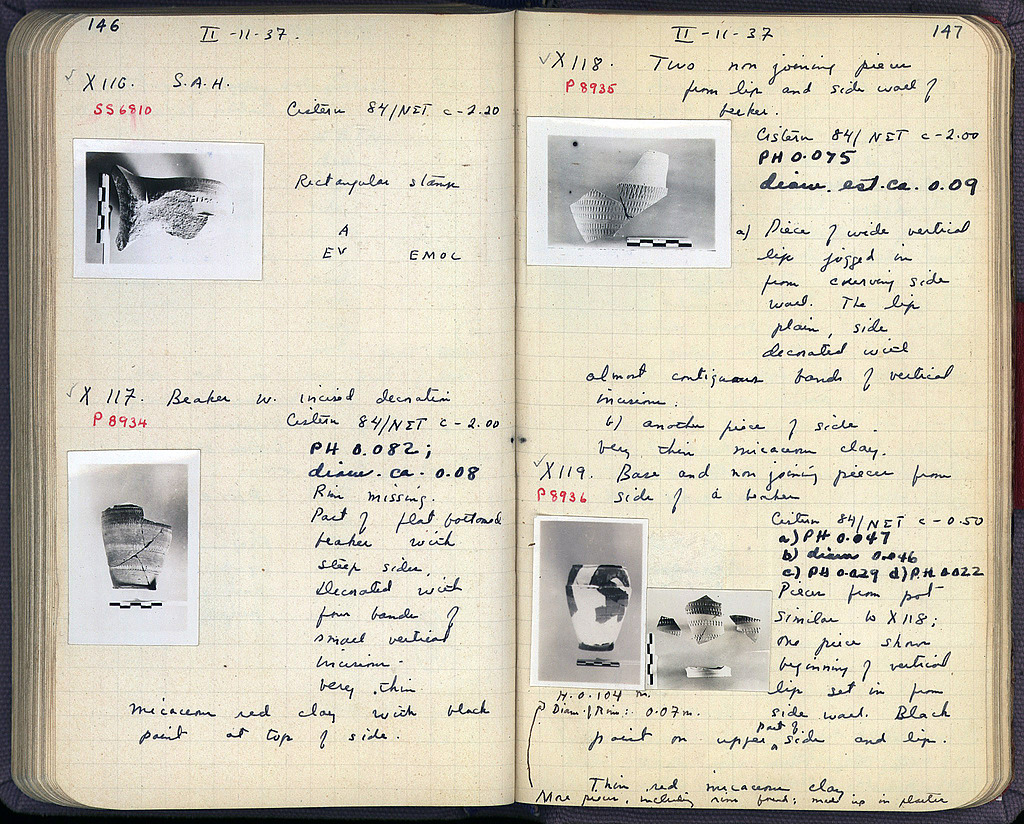 146
II - 11 - 37.
X 116. S.A.H.
SS 6810
Cistern 84/NET c - 2.20
Rectangular stamp
A
EV EMOL
X 117. Beaker w. incised decoration
P 8934
Cistern 84/NET c - 2.00
PH 0.082;
diam. ca. 0.08
Rim missing.
Part of flat bottomed
beaker with
steep sides.
Decorated with
four bands of
small vertical
incisions.
Very thin
micaceous red clay with black
paint at top of side.
II - 11 - 37
147
X 118. Two non joining pieces
P 8935
from lip and side wall of
beaker.
Cistern 84/NET c - 2.00
PH 0.075
diam. est. ca. 0.09
a) Piece of wide vertical
lip jogged in
from curving side
wall. The lip
plain, side
decorated with
almost contiguous bands of vertical
incisions.
b) another piece of side.
Very thin micaceous clay.
X 119. Base and non joining pieces from
P 8936
side of a beaker
Cistern 84/NET c - 0.50
a) PH 0.047
b) diam 0.046
c) PH 0.029 d) PH 0.022
Pieces from pot
similar to X 118;
one piece shows
beginning of vertical
lip set in from
side wall. Black
paint on upper part of side and lip.
H. 0.104 m.
Diam. of Rim: 0.07 m.
Thin red micaceous clay
More pieces, including rim found; made up in plaster